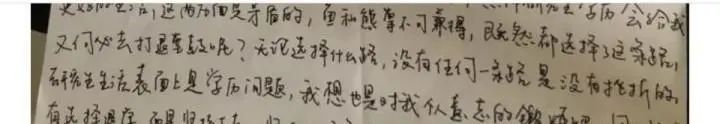 更好的生活,这两方面是矛盾的,鱼和熊掌不可兼得,既然都选择了这条路,
又何必去打退堂鼓呢?无论选择什么路,没有任何一条路是没有挫折的,
研究生生活表面上是学历问题,我想也是对我们意志的锻炼吧
有选择退